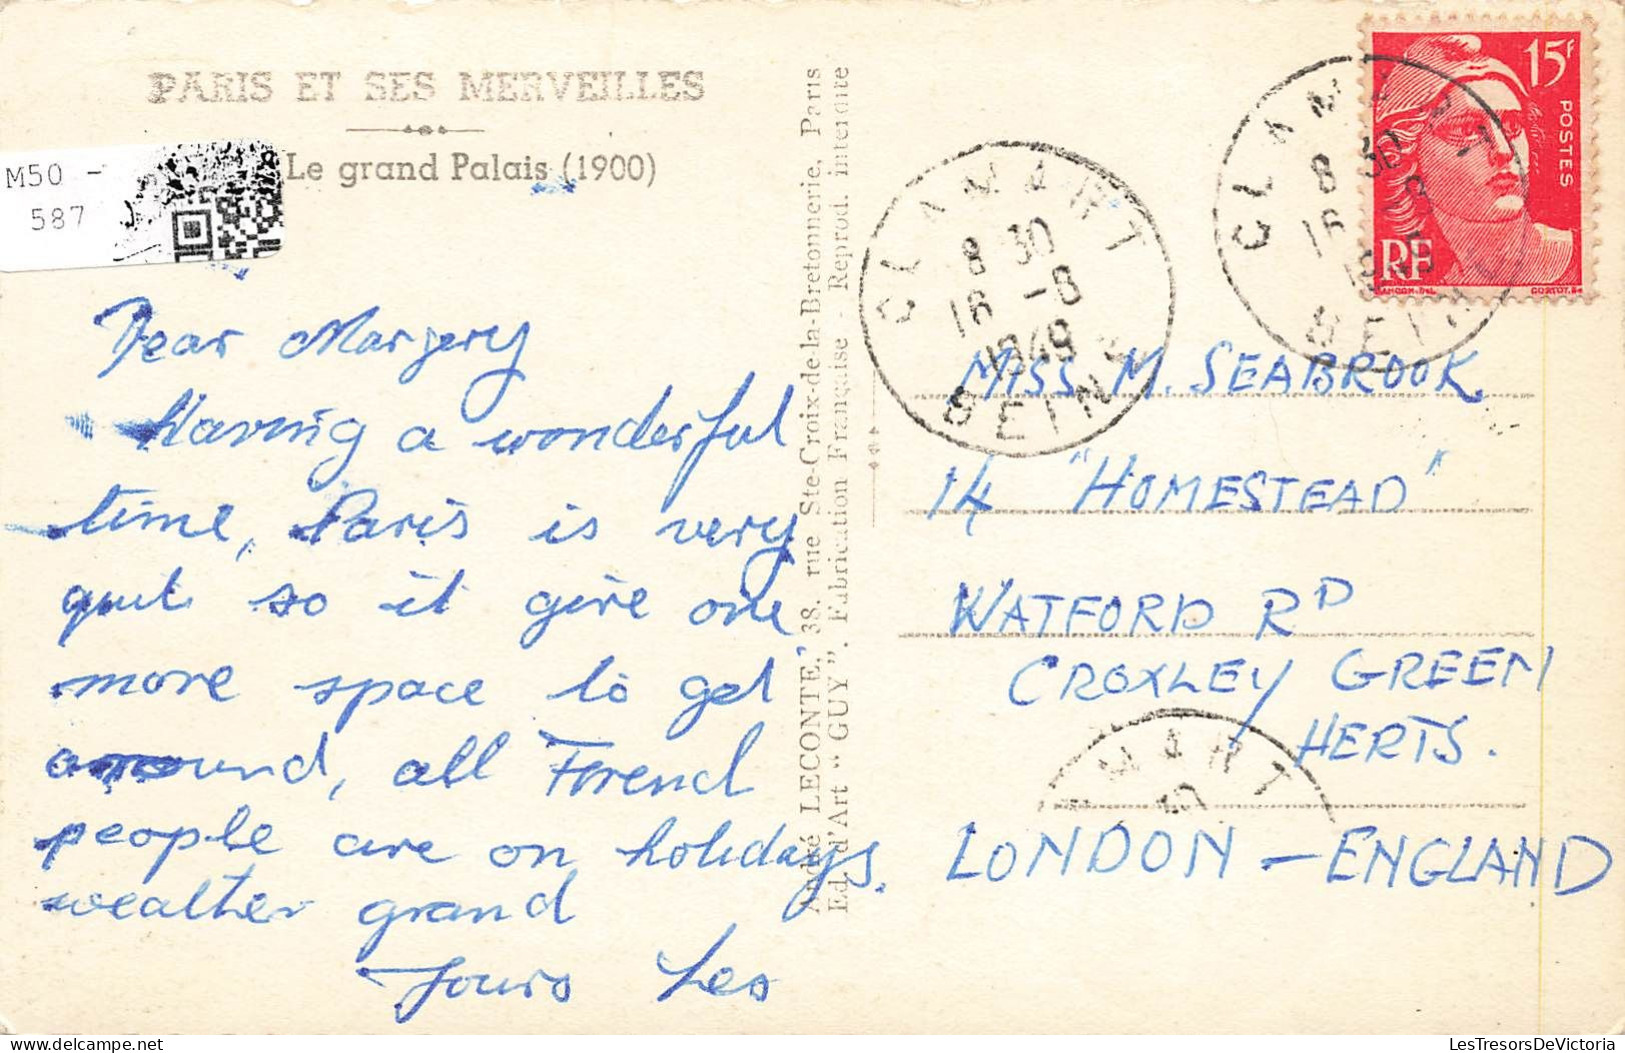 PARIS ET SES MERVEILLES
Le grand Palais (1900)
M50 -
587
Dear Margery
Having a wonderful
time, Paris is very
quit so it give one
more space to get
around, all Frend
people are on holidays,
weather grand
Yours Les
André LECONTE, 38, rue Ste-Croix-de-la-Bretonnerie, Paris
Ed. d'Art "GUY". Fabrication Française - Reprod. interdite
CLAMART
8 30
16 -8
1949
SEINE
CLAMART
8 30
16 -8
1949
SEINE
15F
POSTES
RF
GANDON.DEL
CORTOT.SC
MISS M. SEABROOK
14 "HOMESTEAD"
WATFORD RD
CROXLEY GREEN
HERTS.
AMART
30
LONDON - ENGLAND
LesTresorsDeVictoria